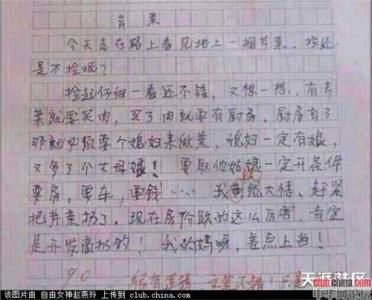 芹菜
今天走在路上看见地上一捆芹菜,捡还
是不捡呢?
捡起仔细一看还不错,又想一想,有芹
菜就要买肉,买了肉就要有厨房,厨房有了
那就必须要个媳妇来做菜,媳妇一定有娘,
又多了个丈母娘!要取他姑娘一定开条件
要房,要车,要钱……我恍然大悟,赶紧
把芹菜扔了。现在房价跌的这么厉害,肯定
是开发商扔的!我的妈呀,差点上当!
90
天涯社区
club.china.com
该图片由 自由女神赵燕玲 上传到 club.china.com